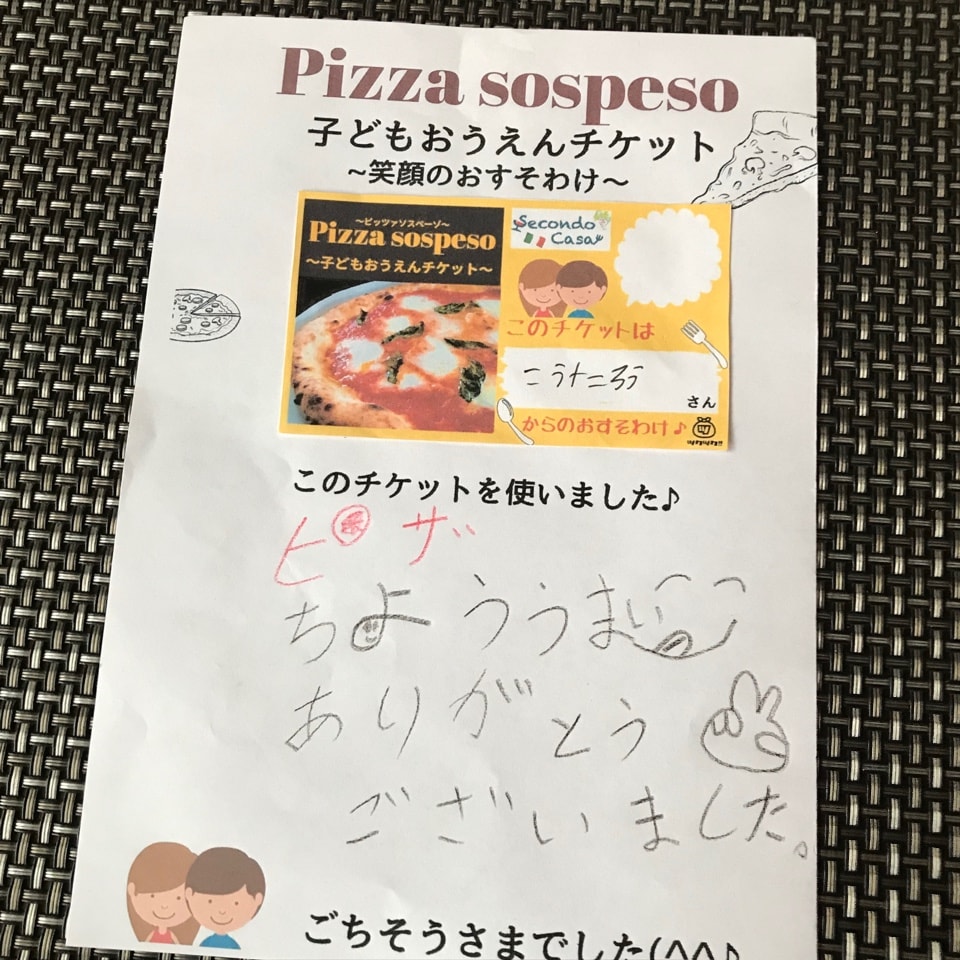 Pizza sospeso
子どもおうえんチケット
~笑顔のおすそわけ~
~ピッツァソスペーゾ~
Pizza sospeso
~子どもおうえんチケット~
Secondo
Casa
このチケットは
こうたろう
さん
からのおすそわけ♪
このチケットを使いました♪
ピザ
ちょううまい
ありがとう
ございました。
ごちそうさまでした(^^♪